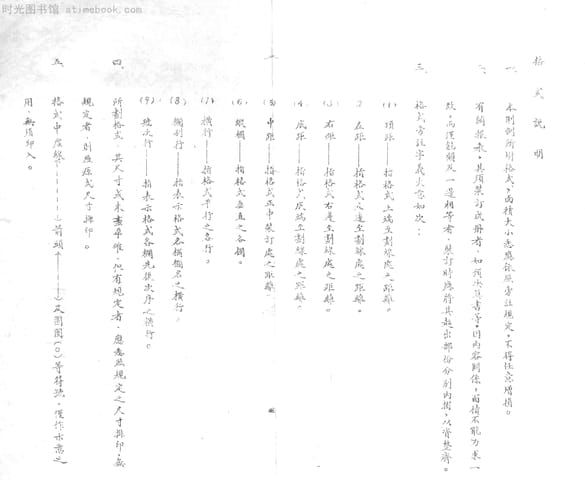 时光图书馆 atimebook.com
格式說明
一、本則例所用格式，面積大小悉應依照旁註規定，不得任意增損。
二、有關報表，其須裝訂成冊者，如預決算書等，因內容關係，面積不能力求一
致，而僅能顧及一邊相等者，裝訂時應將其超出部份分別內摺，以資整齊。
三、格式旁註字義大意如次：
(1) 頂距——指格式上端至劃線處之距離。
(2) 左距——指格式左邊至劃線處之距離。
(3) 右距——指格式右邊至劃線處之距離。
(4) 底距——指格式底端至劃線處之距離。
(5) 中距——指格式正中裝訂處之距離。
(6) 縱欄——指格式垂直之各欄。
(7) 橫行——指格式平行之各行。
(8) 欄別行——指表示格式各欄欄名之橫行。
(9) 號次行——指表示格式各欄先後次序之橫行。
四、所劃格式，其尺寸或未盡準確，但有規定者，應悉照規定之尺寸排印，無
規定者，則照原式尺寸排印。
五、格式中虛線(-----)箭頭(←——→)及圓圈(○)等符號，僅作示意之
用，無須印入。